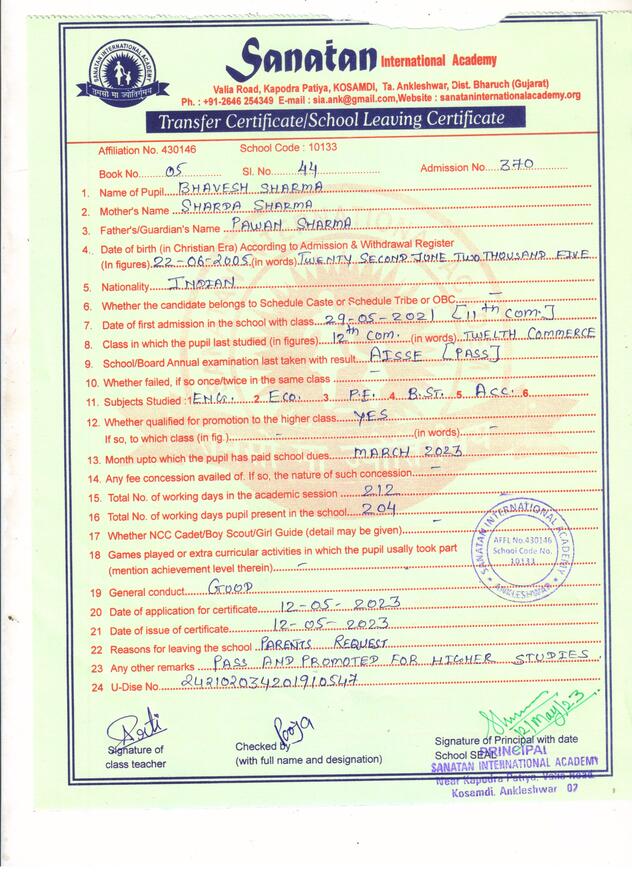 SANATAN INTERNATIONAL ACADEMY
तमसो मा ज्योतिर्गमय
Sanatan International Academy
Valia Road, Kapodra Patiya, KOSAMDI, Ta. Ankleshwar, Dist. Bharuch (Gujarat)
Ph. : +91-2646 254349 E-mail : sia.ank@gmail.com,Website : sanataninternationalacademy.org
Transfer Certificate/School Leaving Certificate
Affiliation No. 430146 School Code : 10133
Book No. 05 Sl. No. 44 Admission No. 370
1. Name of Pupil BHAVESH SHARMA
2. Mother's Name SHARDA SHARMA
3. Father's/Guardian's Name PAWAN SHARMA
4. Date of birth (in Christian Era) According to Admission & Withdrawal Register
(In figures) 22-06-2005 (in words) TWENTY SECOND JUNE TWO THOUSAND FIVE
5. Nationality INDIAN
6. Whether the candidate belongs to Schedule Caste or Schedule Tribe or OBC –
7. Date of first admission in the school with class 29-05-2021 [11th COM.]
8. Class in which the pupil last studied (in figures) 12th COM. (in words) TWELTH COMMERCE
9. School/Board Annual examination last taken with result AISSE [PASS]
10. Whether failed, if so once/twice in the same class –
11. Subjects Studied :1 ENG. 2. ECO. 3. P.E. 4. B.ST. 5. ACC. 6.
12. Whether qualified for promotion to the higher class YES
If so, to which class (in fig.) – (in words) –
13. Month upto which the pupil has paid school dues MARCH 2023
14. Any fee concession availed of. If so, the nature of such concession –
15. Total No. of working days in the academic session 212
16 Total No. of working days pupil present in the school 204
17 Whether NCC Cadet/Boy Scout/Girl Guide (detail may be given) –
18 Games played or extra curricular activities in which the pupil usally took part
(mention achievement level therein) –
19 General conduct GOOD
20 Date of application for certificate 12-05-2023
21 Date of issue of certificate 12-05-2023
22 Reasons for leaving the school PARENTS REQUEST
23 Any other remarks PASS AND PROMOTED FOR HIGHER STUDIES.
24 U-Dise No. 24210203420191 0547
SANATAN INTERNATIONAL ACADEMY
AFFL No.430146
School Code No.
10133
ANKLESHWAR
Pooja
12/May/23
Signature of
class teacher
Checked by
(with full name and designation)
Signature of Principal with date
School SEAL
PRINCIPAL
SANATAN INTERNATIONAL ACADEMY
Near Kapodra Patiya, Valia Road,
Kosamdi, Ankleshwar 02